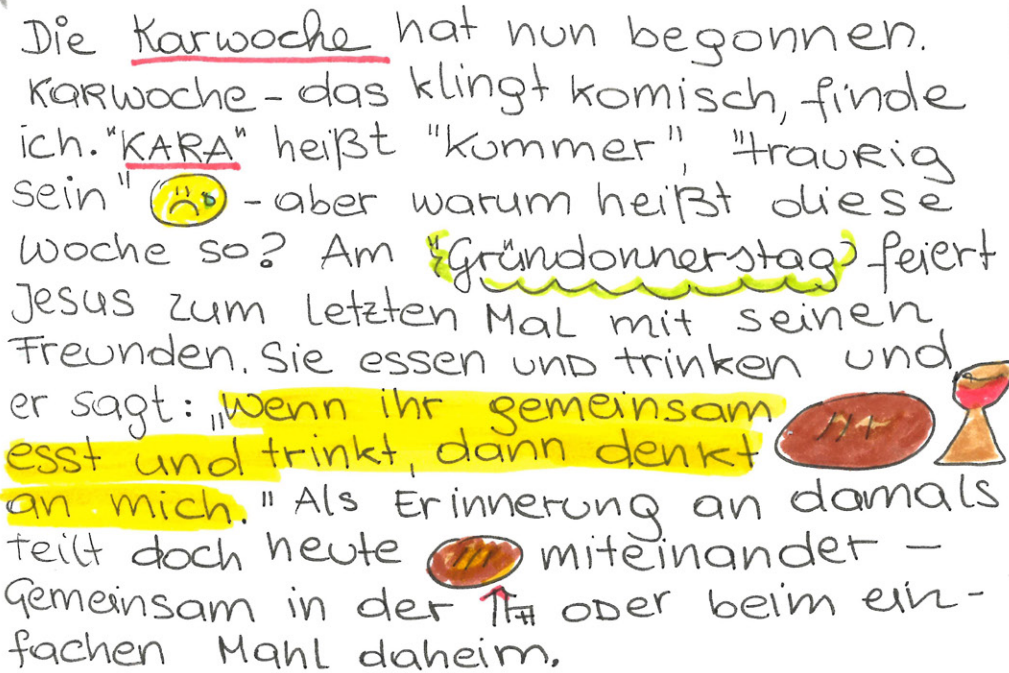 Die Karwoche hat nun begonnen.
Karwoche - das klingt komisch, finde
ich. "KARA" heißt "Kummer", "traurig
sein" - aber warum heißt diese
Woche so? Am "Gründonnerstag" feiert
Jesus zum letzten Mal mit seinen
Freunden. Sie essen und trinken und
er sagt: „Wenn ihr gemeinsam
esst und trinkt, dann denkt
an mich." Als Erinnerung an damals
teilt doch heute miteinander -
Gemeinsam in der oder beim ein-
fachen Mahl daheim.